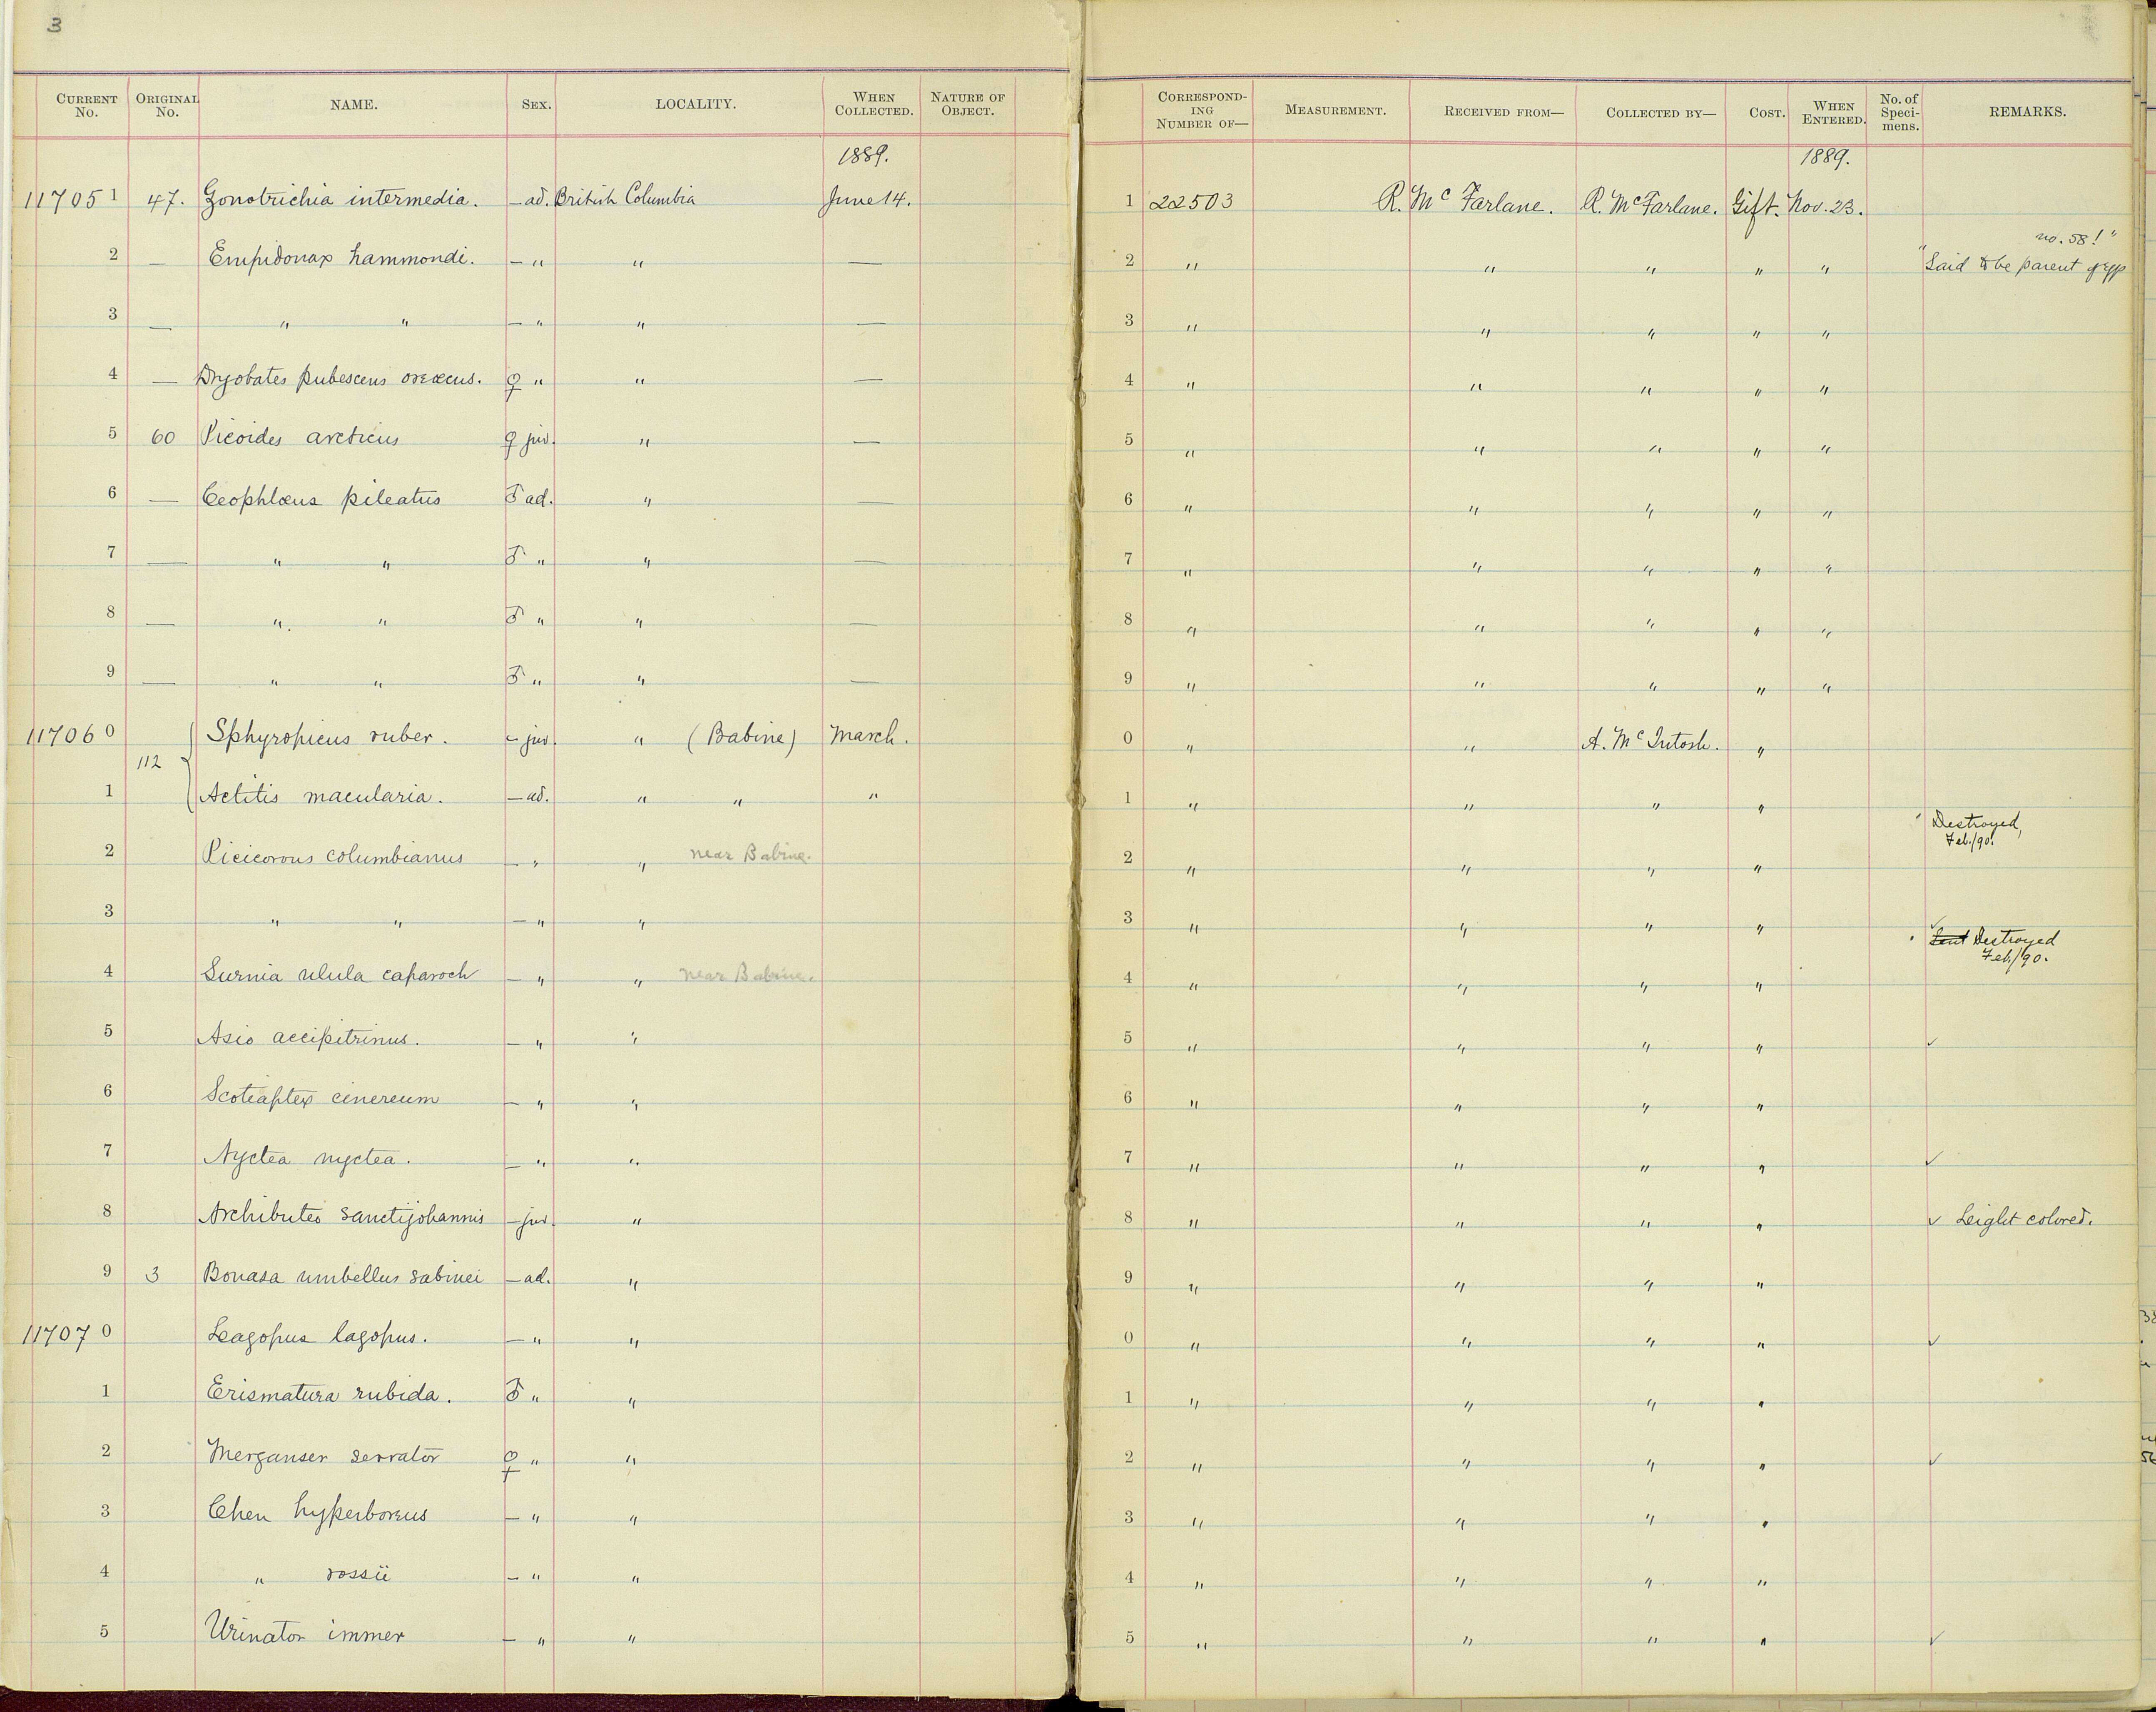 3
CURRENT No. ORIGINAL No. NAME. SEX. LOCALITY. WHEN COLLECTED. NATURE OF OBJECT. CORRESPONDING NUMBER OF— MEASUREMENT. RECEIVED FROM— COLLECTED BY— COST. WHEN ENTERED. No. of Specimens. REMARKS.
1889. 1889.
117051 47. Zonotrichia intermedia. — ad. British Columbia June 14. 1 22503 R. McFarlane. R. McFarlane. Gift. Nov. 23.
2 — Empidonax hammondi. — " " — 2 " " " " " "Said to be parent of eggs no. 58!"
3 — " " — " " — 3 " " " " "
4 — Dryobates pubescens oreœcus. ♀ " " — 4 " " " " "
5 60 Picoides arcticus ♀ juv. " — 5 " " " " "
6 — Ceophlœus pileatus ♂ ad. " — 6 " " " " "
7 — " " ♂ " " — 7 " " " " "
8 — " " ♂ " " — 8 " " " " "
9 — " " ♂ " " — 9 " " " " "
117060 Sphyropicus ruber. — juv. " (Babine) March. 0 " " A. McIntosh. "
112
1 Actitis macularia. — ad. " " " 1 " " " "
2 Picicorvus columbianus — " " near Babine. 2 " " " " Destroyed, Feb./90.
3 " " — " " 3 " " " " ✓
4 Surnia ulula caparoch — " " near Babine. 4 " " " " Sent Destroyed Feb./90.
5 Asio accipitrinus. — " " 5 " " " " ✓
6 Scotiaptex cinereum — " " 6 " " " "
7 Nyctea nyctea. — " " 7 " " " " ✓
8 Archibuteo sanctijohannis — juv. " 8 " " " " ✓ Light colored.
9 3 Bonasa umbellus sabinei — ad. " 9 " " " "
117070 Lagopus lagopus. — " " 0 " " " " ✓
1 Erismatura rubida. ♂ " " 1 " " " "
2 Merganser serrator ♀ " " 2 " " " " ✓
3 Chen hyperboreus — " " 3 " " " "
4 " rossii — " " 4 " " " "
5 Urinator immer — " " 5 " " " " ✓